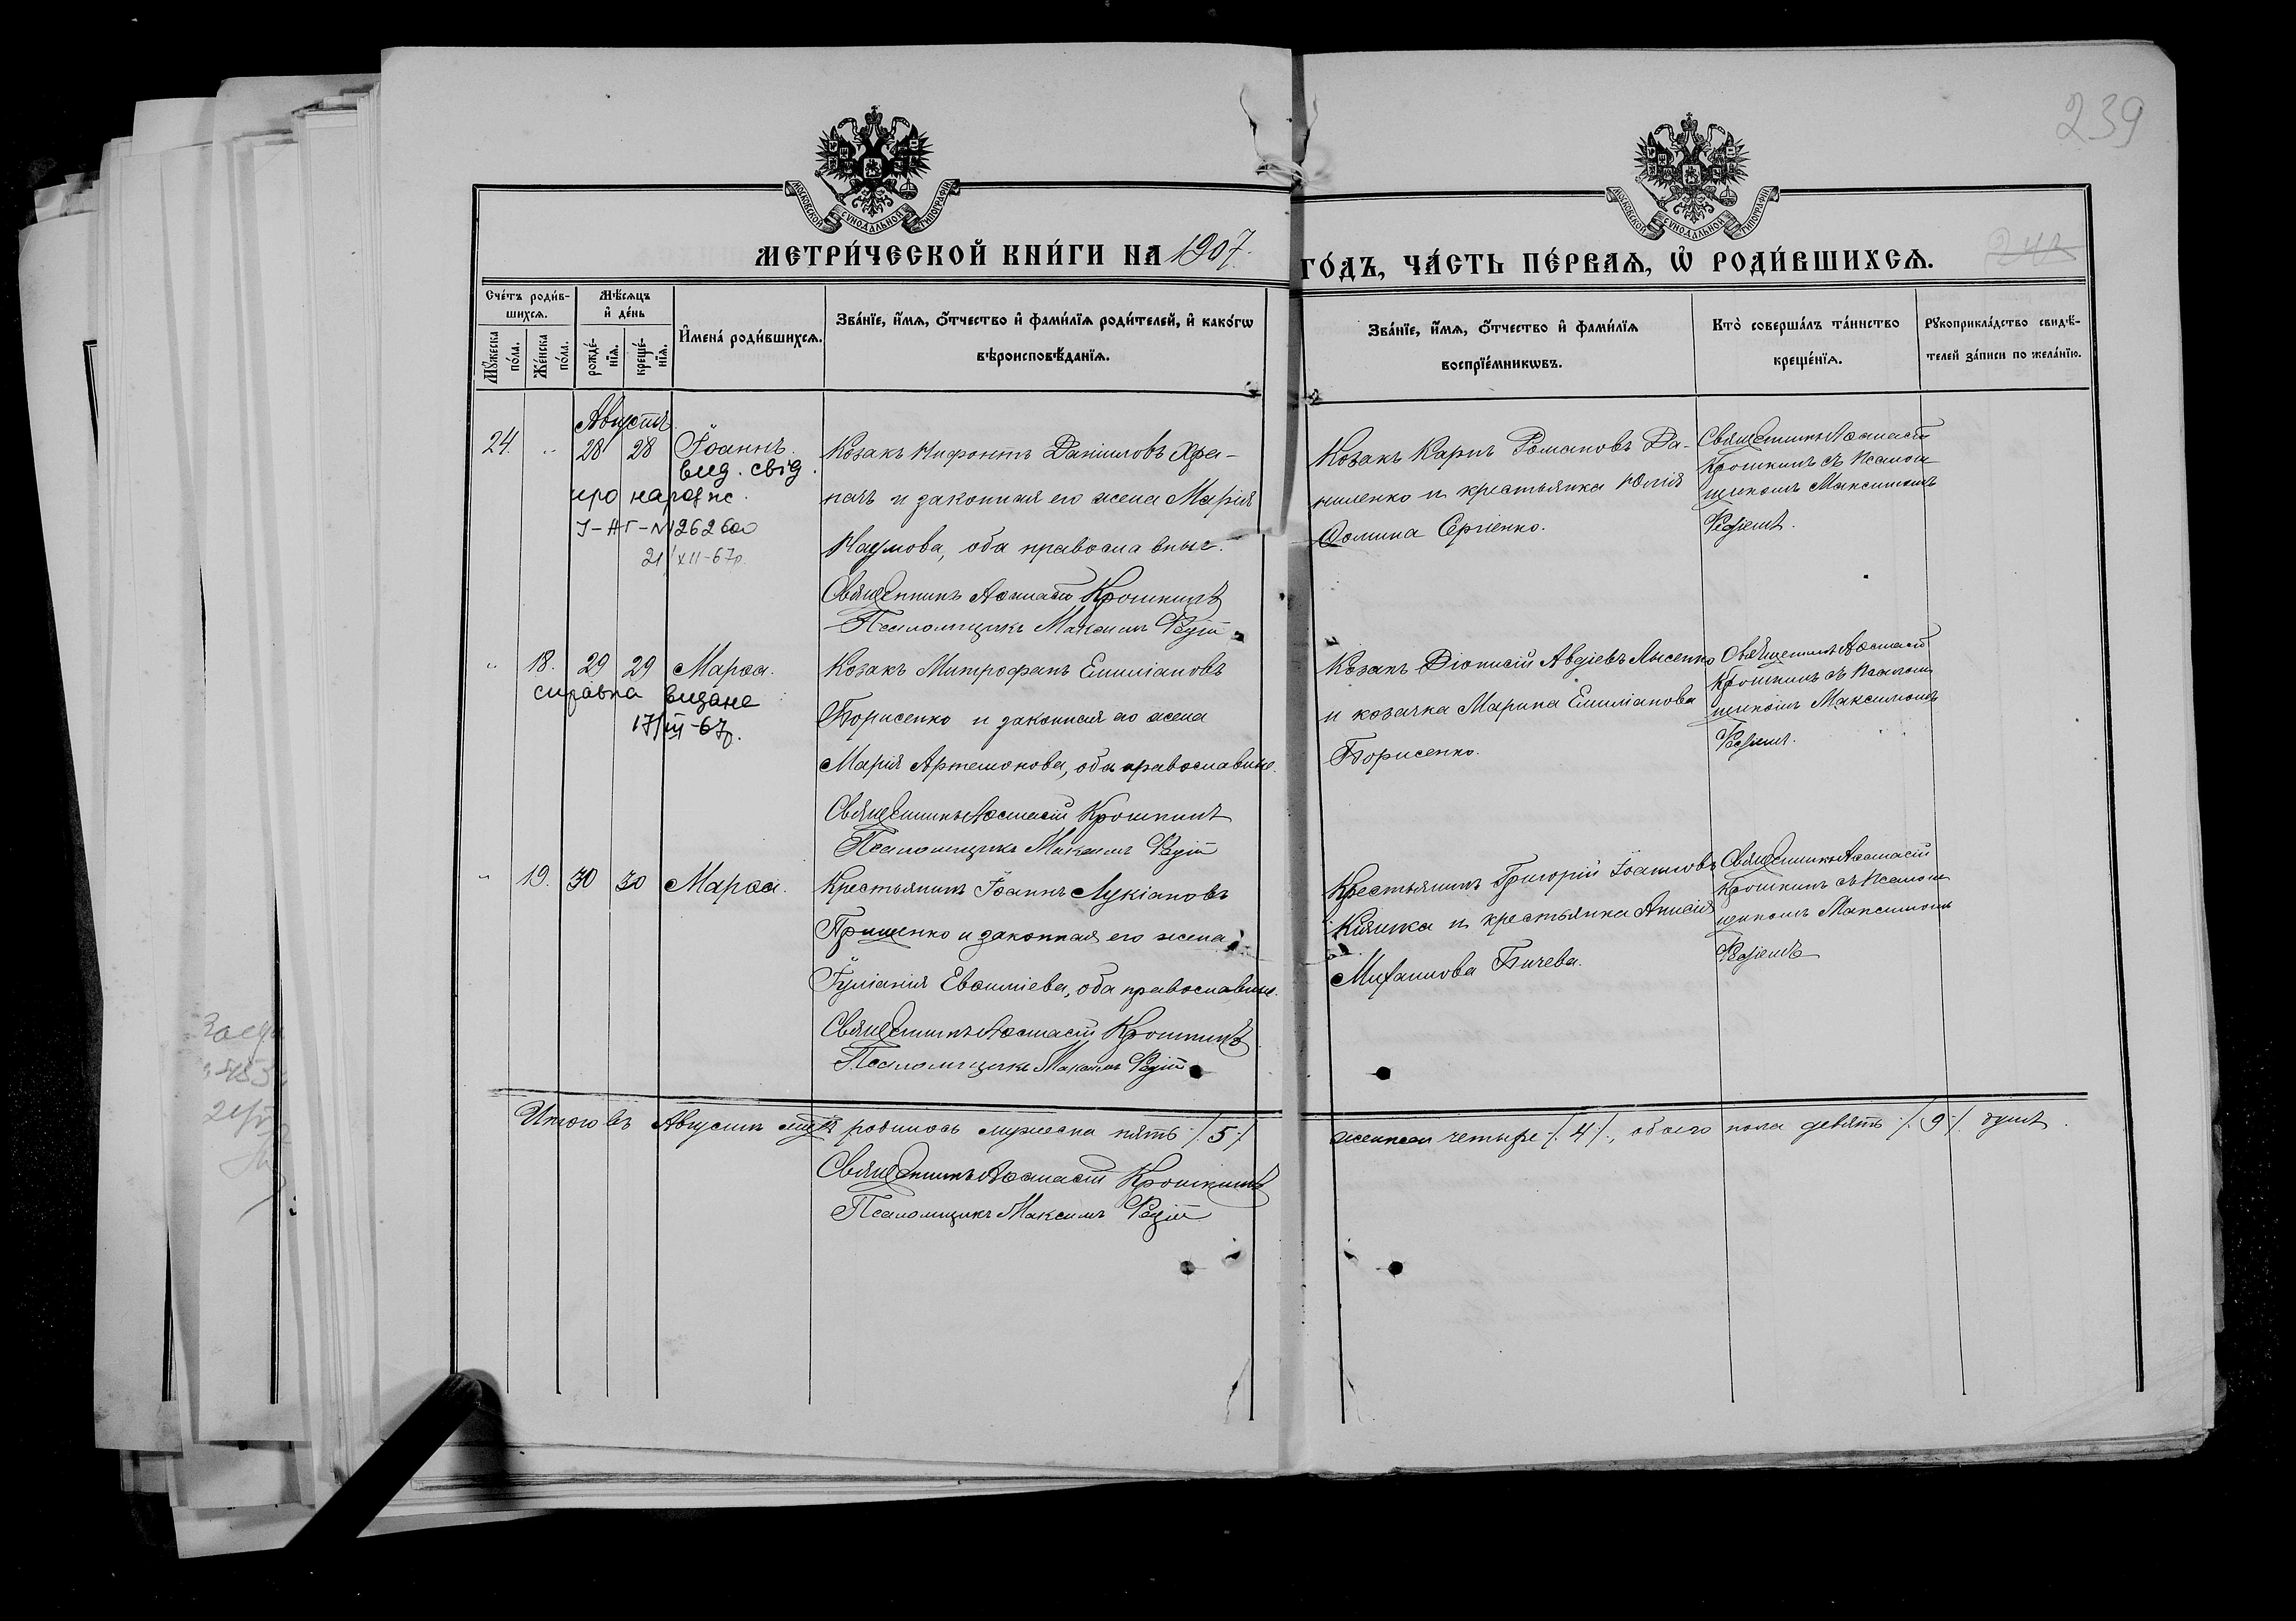 239
МОСКОВСКОЙ СѴНОДАЛЬНОЙ ТИПОГРАФІИ
МОСКОВСКОЙ СѴНОДАЛЬНОЙ ТИПОГРАФІИ
МЕТРИ́ЧЕСКОЙ КНИ́ГИ НА 1907 ГО́ДЪ, ЧА́СТЬ ПЕ́РВАѦ, Ѽ РОДИ́ВШИХСѦ.
Сче́тъ роди́в-
шихсѧ.
Мꙋ́жеска по́ла.
Же́нска по́ла.
Мѣ́сѧцъ и҆ де́нь
рожде́-нїѧ.
креще́-нїѧ.
И҆мена̀ роди́вшихсѧ.
Зва́нїе, и҆́мѧ, ѻ҆́тчество и҆ фами́лїѧ роди́телей, и҆ како́гѡ
вѣроисповѣ́данїѧ.
Зва́нїе, и҆́мѧ, ѻ҆́тчество и҆ фами́лїѧ
воспрїе́мникѡвъ.
Кто̀ соверша́лъ та́инство
креще́нїѧ.
Рꙋкоприкла́дство свидѣ́-
телей за́писи по жела́нїю.
Августъ
24. " 28 28 Іоаннъ.
вид. свід.
про народж.
I-НГ-№ 262600
21/XII-67р.
Козакъ Нифонтъ Даниловъ Хра-
пачъ и законная его жена Марія
Наумова, оба православные.
Священникъ Аѳанасій Крошкинъ
Псаломщикъ Максимъ
Козакъ Карпъ Романовъ Да-
ниленко и крестьянка Юлія
Ѳомина Сергіенко.
Священникъ Аѳанасій
Крошкинъ съ псалом-
щикомъ Максимомъ
" 18. 29 29 Марѳа.
справка видана
17/III-67р.
Козакъ Митрофанъ Емиліановъ
Борисенко и законная его жена
Марія Артемонова, оба православные.
Священникъ Аѳанасій Крошкинъ
Псаломщикъ Максимъ
Козакъ Діонисій Авдіевъ Лысенко
и козачка Марина Емиліанова
Борисенко.
Священникъ Аѳанасій
Крошкинъ съ псалом-
щикомъ Максимомъ
" 19. 30 30 Марѳа.
Крестьянинъ Іоаннъ Лукіановъ
Грищенко и законная его жена
Іуліанія Евѳиміева, оба православные.
Священникъ Аѳанасій Крошкинъ
Псаломщикъ Максимъ
Крестьянинъ Григорій Іоанновъ
Кияшка и крестьянка Анисія
Михаилова Бичева.
Священникъ Аѳанасій
Крошкинъ съ псалом-
щикомъ Максимомъ
Итого въ Августѣ м-цѣ родилось мужеска пять /5/ женска четыре /4/, обоего пола девять /9/ душъ.
Священникъ Аѳанасій Крошкинъ
Псаломщикъ Максимъ